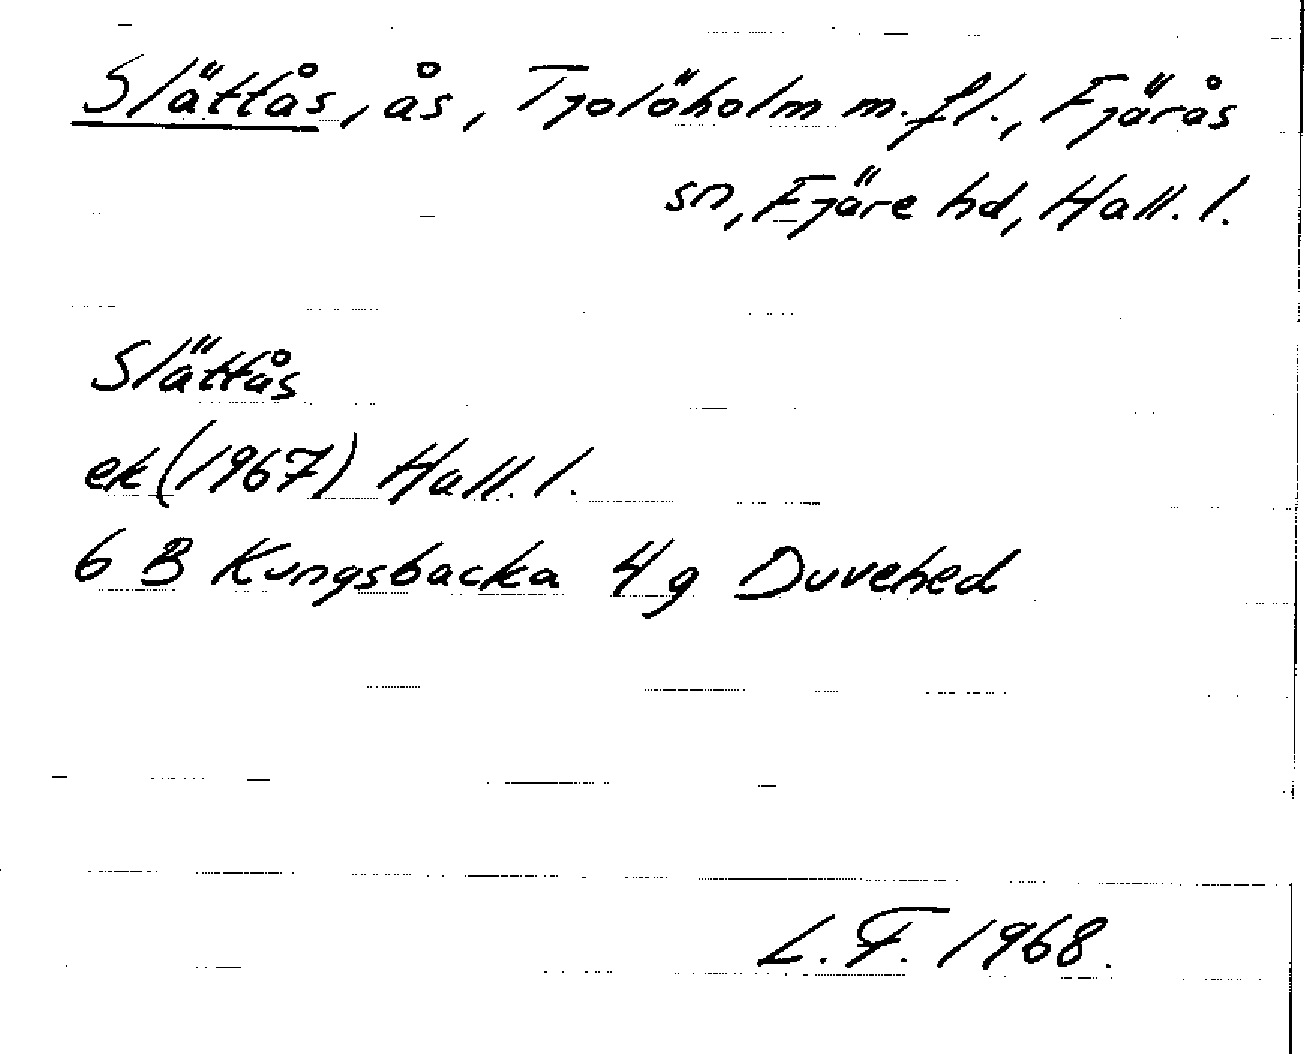 Slättås, ås, Tjolöholm m.fl., Fjärås
sn, Fjäre hd, Hall. l.
Slättås
ek (1967) Hall. l.
6 B Kungsbacka 4g Duvehed
L. F. 1968.